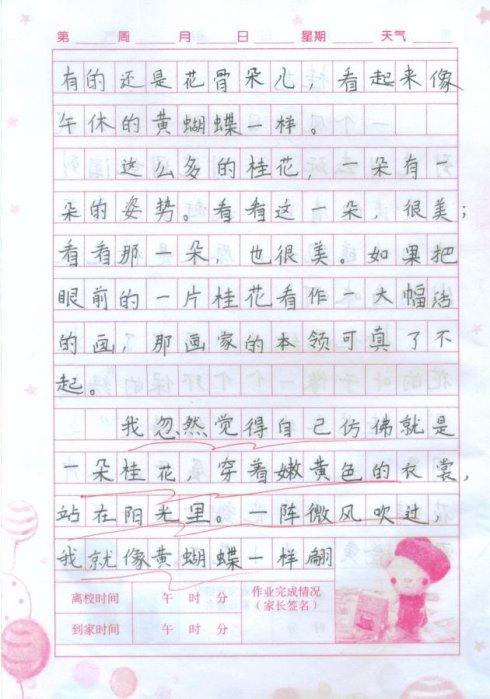 第 周 月 日 星期 天气
有的还是花骨朵儿，看起来像
午休的黄蝴蝶一样。
这么多的桂花，一朵有一
朵的姿势。看看这一朵，很美；
看看那一朵，也很美。如果把
眼前的一片桂花看作一大幅活
的画，那画家的本领可真了不
起。
我忽然觉得自己仿佛就是
一朵桂花，穿着嫩黄色的衣裳，
站在阳光里。一阵微风吹过，
我就像黄蝴蝶一样翩
离校时间 午 时 分 作业完成情况
（家长签名）
到家时间 午 时 分